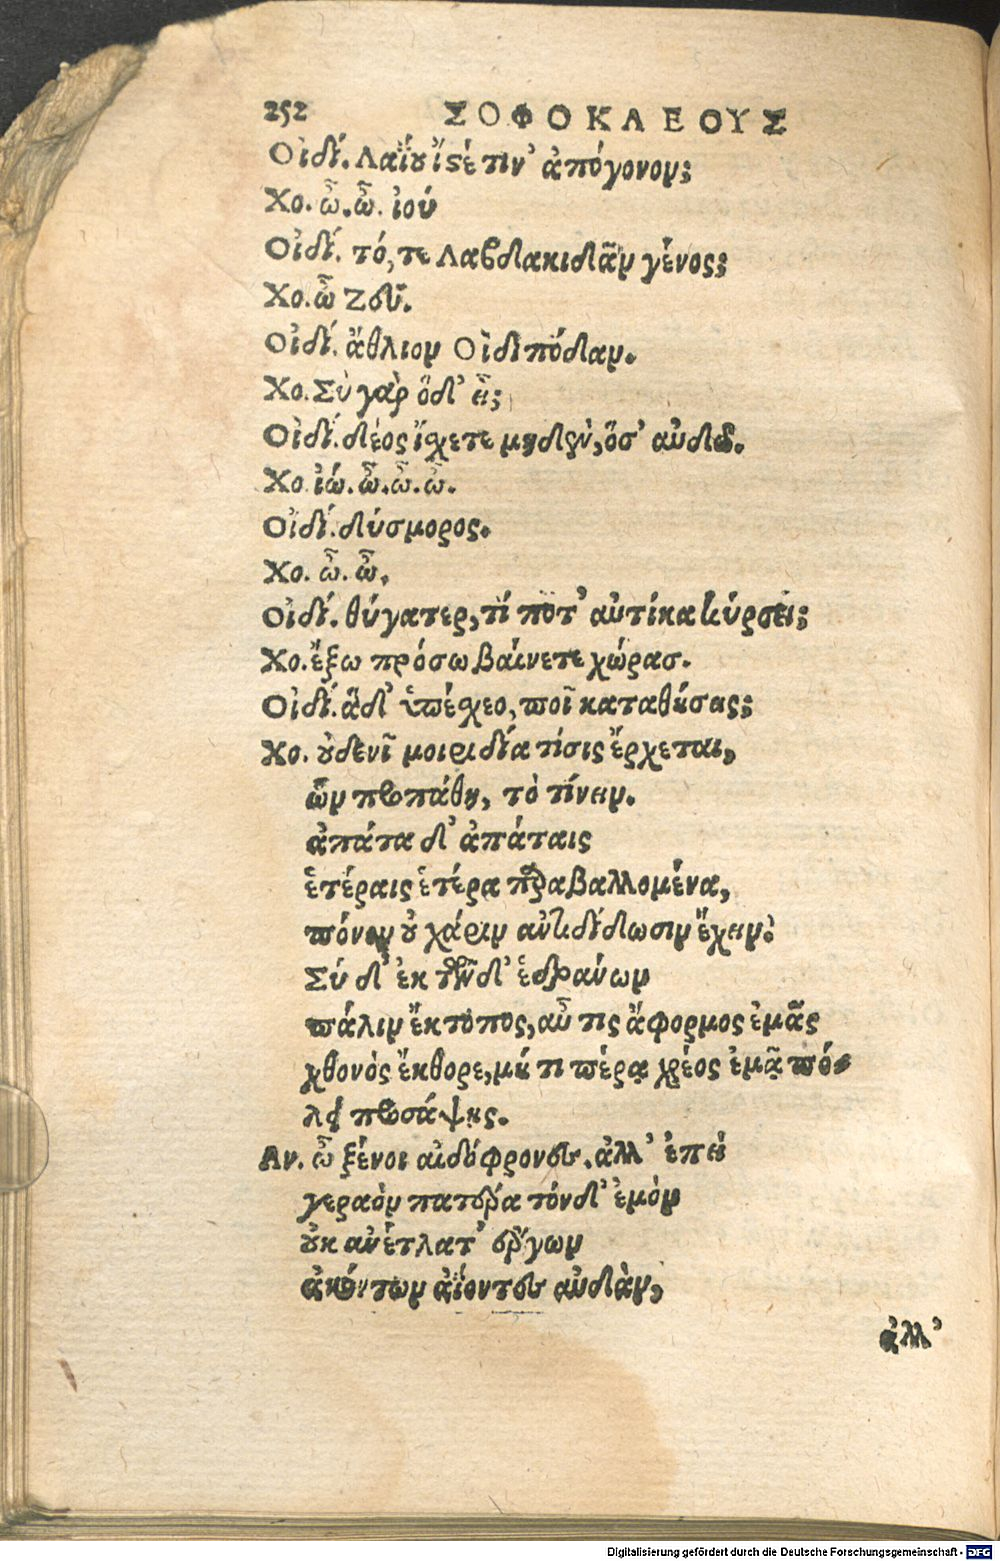 252 ΣΟΦΟΚΛΕΟΥΣ
Οἰδί. Λαΐου ἴστέ τιν’ ἀπόγονον;
Χο. ὦ. ὦ. ἰού
Οἰδί. τό, τε Λαβδακιδᾶν γένος;
Χο. ὦ Ζεῦ.
Οἰδί. ἄθλιον Οἰδιπόδαν.
Χο. Σὺ γὰρ ὅδ’ εἶ;
Οἰδί. δέος ἴσχετε μηδὲν, ὅσ’ αὐδῶ.
Χο ἰώ. ὦ. ὦ. ὦ.
Οἰδί. δύσμορος.
Χο. ὦ. ὦ.
Οἰδί. θύγατερ, τί ποτ’ αὐτίκα κύρσει;
Χο. ἔξω πρόσω βαίνετε χώρας.
Οἰδί. ἃ δ’ ὑπέσχεο, ποῖ καταθήσεις;
Χο. οὐδενῖ μοιριδία τίσις ἔρχεται,
ὧν προπάθῃ, τὸ τίνειν.
ἀπάτα δ’ ἀπάταις
ἑτέραις ἑτέρα παραβαλλομένα,
πόνον οὐ χάριν ἀντιδίδωσιν ἔχειν.
Σύ δ’ ἐκ τῶνδ’ ἑδράνων
πάλιν ἔκτοπος, αὖτις ἄφορμος ἐμᾶς
χθονὸς ἔκθορε, μή τι πέρα χρέος ἐμᾷ πό-
λει προσάψῃς.
Αν. ὦ ξένοι αἰδόφρονες. ἀλλ’ ἐπεὶ
γεραὸν πατέρα τόνδ’ ἐμὸν
οὐκ ἀνέτλατ’ ἔργων
ἀκόντων ἀΐοντες αὐδὰν,
ἀλλ’
Digitalisierung gefördert durch die Deutsche Forschungsgemeinschaft - DFG